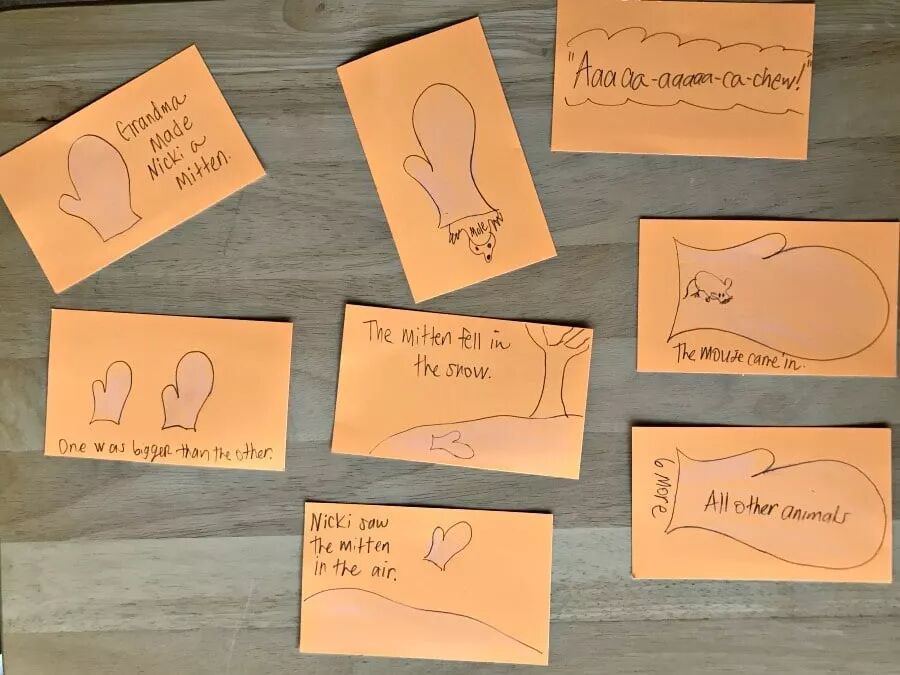 Grandma
Made
Nicki a
Mitten.
Mole
"Aaaaa-aaaaa-ca-chew!"
The mouse came in.
One was bigger than the other.
The mitten fell in
the snow.
6 More
All other animals
Nicki saw
the mitten
in the air.